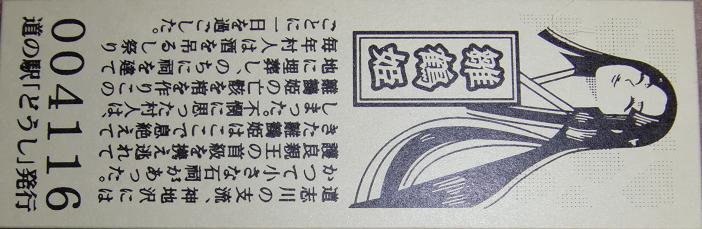 雛鶴姫
道志川の支流、神地沢には
かつて小さな石祠があった。
護良親王の首級を携え逃れて
きた雛鶴姫はここで息絶えて
しまった。不憫に思った村人は、
雛鶴姫の亡骸を塔を作りこの
地に埋葬しのちに祠を建て
毎年村人は酒を吊るし祭り
ごとに一日を過ごした。
0041116
道の駅「どうし」発行